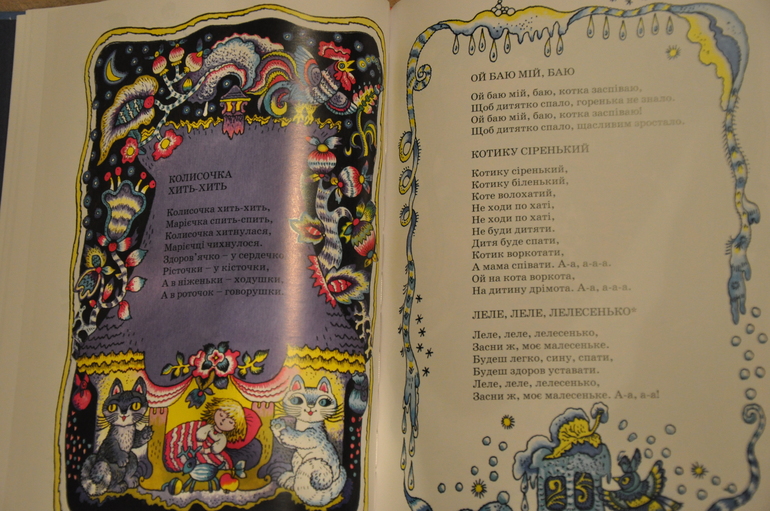 КОЛИСОЧКА
ХИТЬ-ХИТЬ
Колисочка хить-хить,
Марієчка спить-спить,
Колисочка хитнулася,
Марієчці чихнулося.
Здоров'ячко – у сердечко
Рісточки – у кісточки,
А в ніженьки – ходушки,
А в роточок – говорушки.
ОЙ БАЮ МІЙ, БАЮ
Ой баю мій, баю, котка заспіваю,
Щоб дитятко спало, горенька не знало.
Ой баю мій, баю, котка заспіваю!
Щоб дитятко спало, щасливим зростало.
КОТИКУ СІРЕНЬКИЙ
Котику сіренький,
Котику біленький,
Коте волохатий,
Не ходи по хаті,
Не ходи по хаті,
Не буди дитяти.
Дитя буде спати,
Котик воркотати,
А мама співати. А-а, а-а-а.
Ой на кота воркота,
На дитину дрімота. А-а, а-а-а.
ЛЕЛЕ, ЛЕЛЕ, ЛЕЛЕСЕНЬКО*
Леле, леле, лелесенько,
Засни ж, моє малесеньке.
Будеш легко, сину, спати,
Будеш здоров уставати.
Леле, леле, лелесенько,
Засни ж, моє малесеньке. А-а, а-а!
25